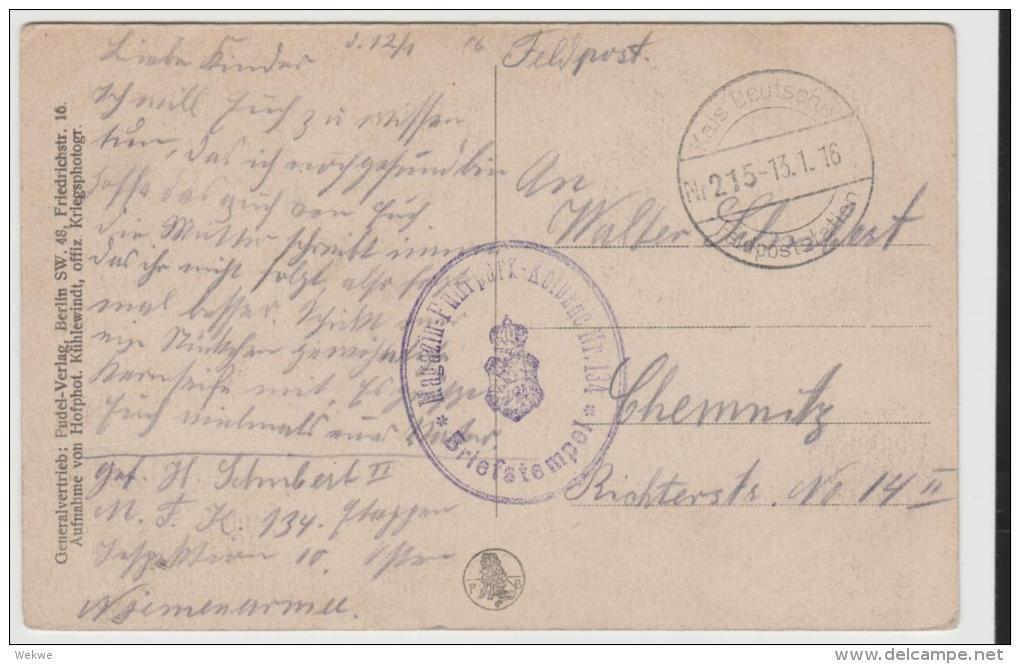 Generalvertrieb: Pudel-Verlag, Berlin SW. 48, Friedrichstr. 16.
Aufnahme von Hofphot. Kühlewindt, offiz. Kriegsphotogr.
d. 12/1 16
Liebe Kinder
Ich will Euch zu wissen
tun, das ich noch gesund bin
hoffe das auch von Euch
die Mutter schreibt immer
das ihr nicht folgt, also folgt
mal besser. Schickt mir
ein Stückchen gewöhnliche
Kernseife mit Es grüsst
Euch vielmals euer Vater
Gef. H. Schubert II
M. F. K. 134. Etappen
Inspektion 10. Osten
Njemenarmee.
Feldpost.
An
Walter Schubert
Chemnitz
Richterstr. No 14 II
Kais. Deutsche
Nr 215 - 13.1.16
Feldpoststation
Magazin-Fuhrpark-Kolonne Nr. 134
* Briefstempel *
P P
Wekwe
delcampe.net